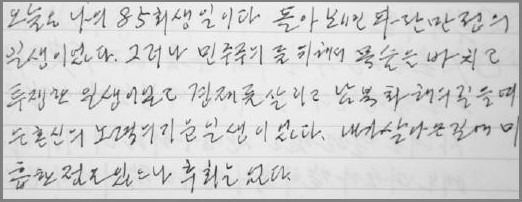 오늘은 나의 85회 생일이다. 돌아보면 파란만장의
일생이었다. 그러나 민주주의를 위해서 목숨을 바치고
투쟁한 일생이었고 경제를 살리고 남북화해의 길을 여
는 혼신의 노력을 기울인 일생이었다. 내가 살아온 길에 미
흡한 점은 있으나 후회는 없다.